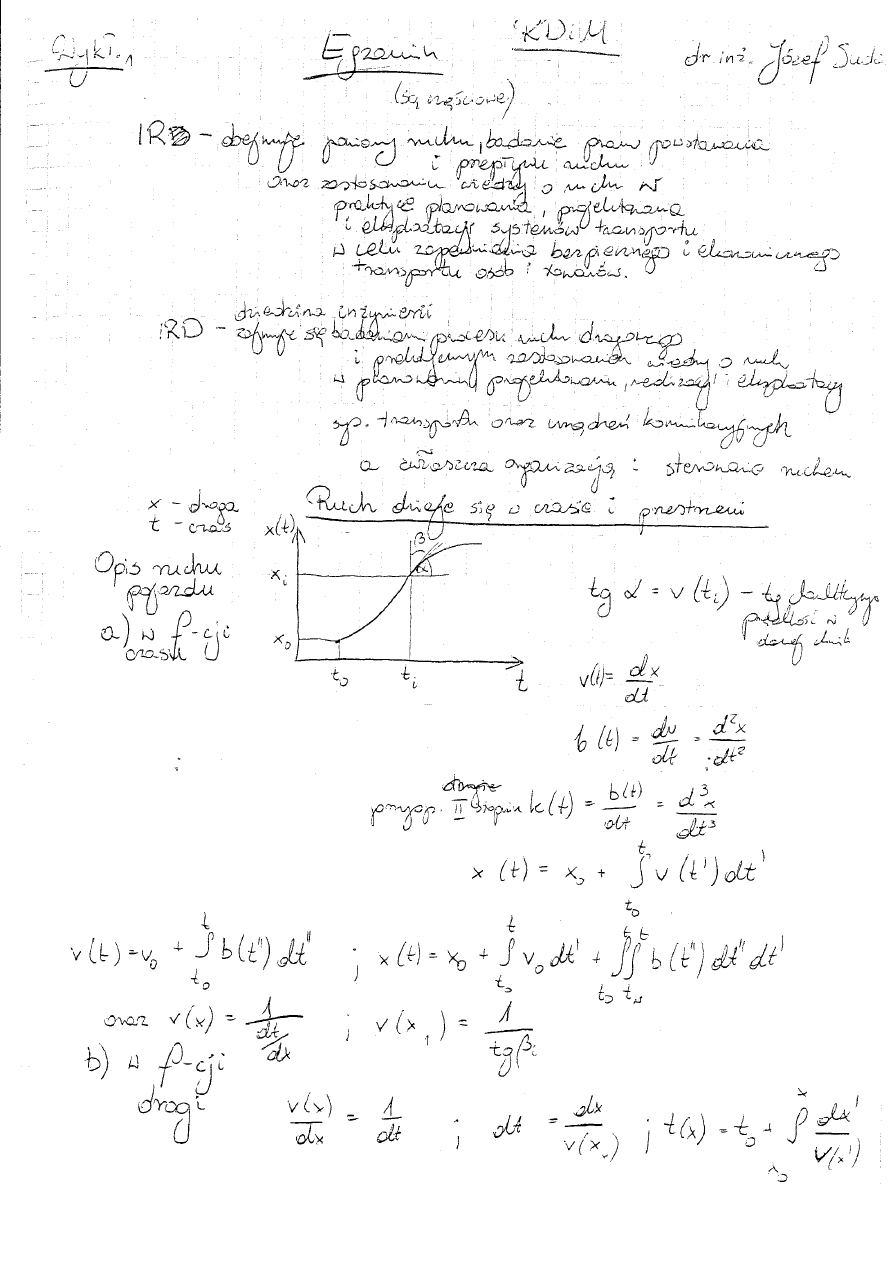 Wykł. 1 Egzamin KDiM dr inż. Józef
(są częściowe)
IRD - obejmuje pomiary ruchu, badanie praw powstawania
i przepływu ruchu
oraz zastosowaniu wiedzy o ruchu w
praktyce planowania, projektowania
i eksploatacji systemów transportu
w celu zapewnienia bezpiecznego i ekonomicznego
transportu osób i towarów.
dziedzina inżynierii
IRD - zajmuje się badaniami procesu ruchu drogowego
i praktycznym zastosowaniem wiedzy o ruchu
w planowaniu, projektowaniu, realizacji i eksploatacji
sys. transportu oraz urządzeń komunikacyjnych
a zwłaszcza organizacją i sterowania ruchem
Ruch dzieje się w czasie i przestrzeni
x - droga
t - czas
x(t)
β
α
Opis ruchu
pojazdu
a) w f-cji
czasu
x_i
x_0
t_0 t_i t
tg α = v(t_i) - tg
prędkość w
danej
v(t) = dx/dt
b(t) = dv/dt = d²x/dt²
przysp. II stopnia k(t) = b(t)/dt = d³x/dt³
x(t) = x_0 + ∫_{t_0}^{t} v(t') dt'
v(t) = v_0 + ∫_{t_0}^{t} b(t'') dt'' ; x(t) = x_0 + ∫_{t_0}^{t} v_0 dt' + ∫_{t_0}^{t} ∫^{t} b(t'') dt'' dt'
oraz v(x) = 1/(dt/dx) ; v(x_1) = 1/(tg β_i)
b) w f-cji
drogi
v(x)/dx = 1/dt ; dt = dx/v(x) ; t(x) = t_0 + ∫_{x_0}^{x} dx'/v(x')